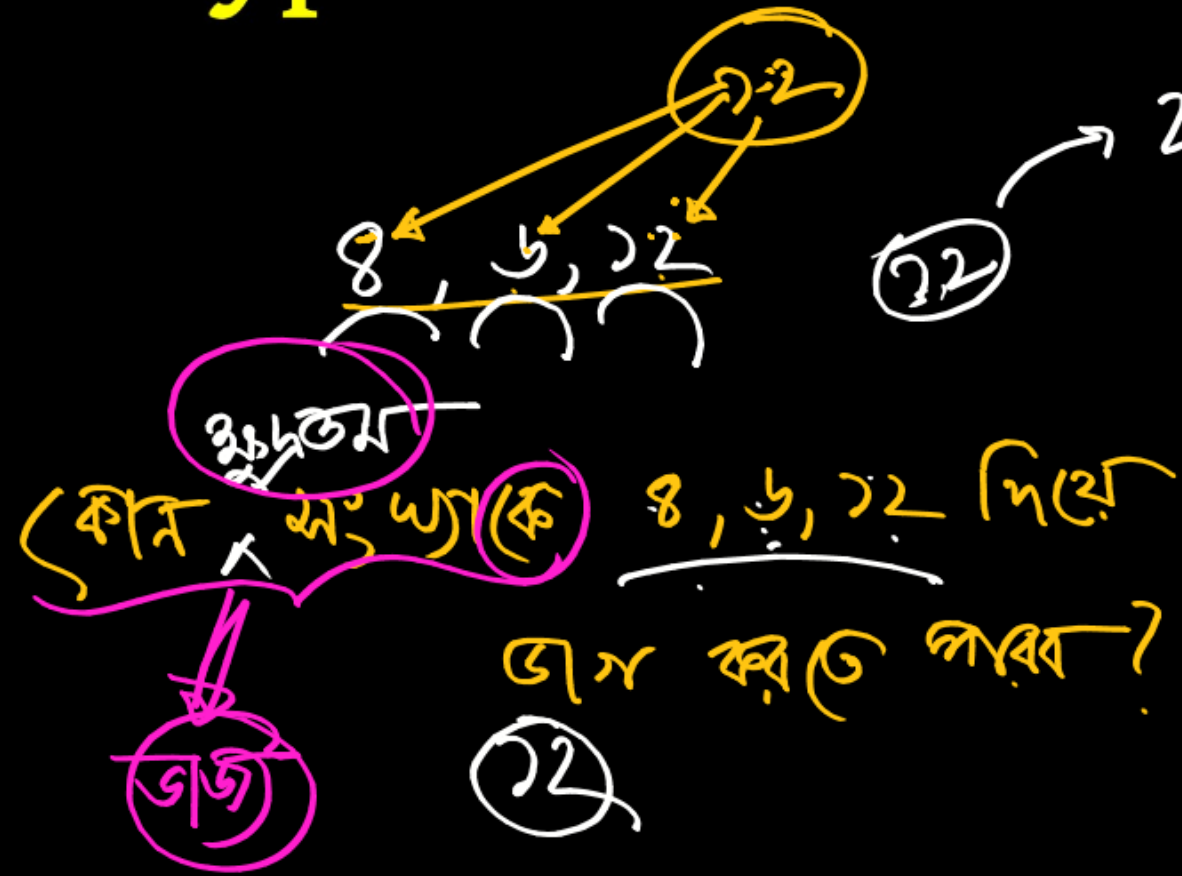 ১২
৪, ৬, ১২
১২
ক্ষুদ্রতম
কোন সংখ্যাকে ৪, ৬, ১২ দিয়ে
ভাগ করতে পারব?
ভাজ্য
১২